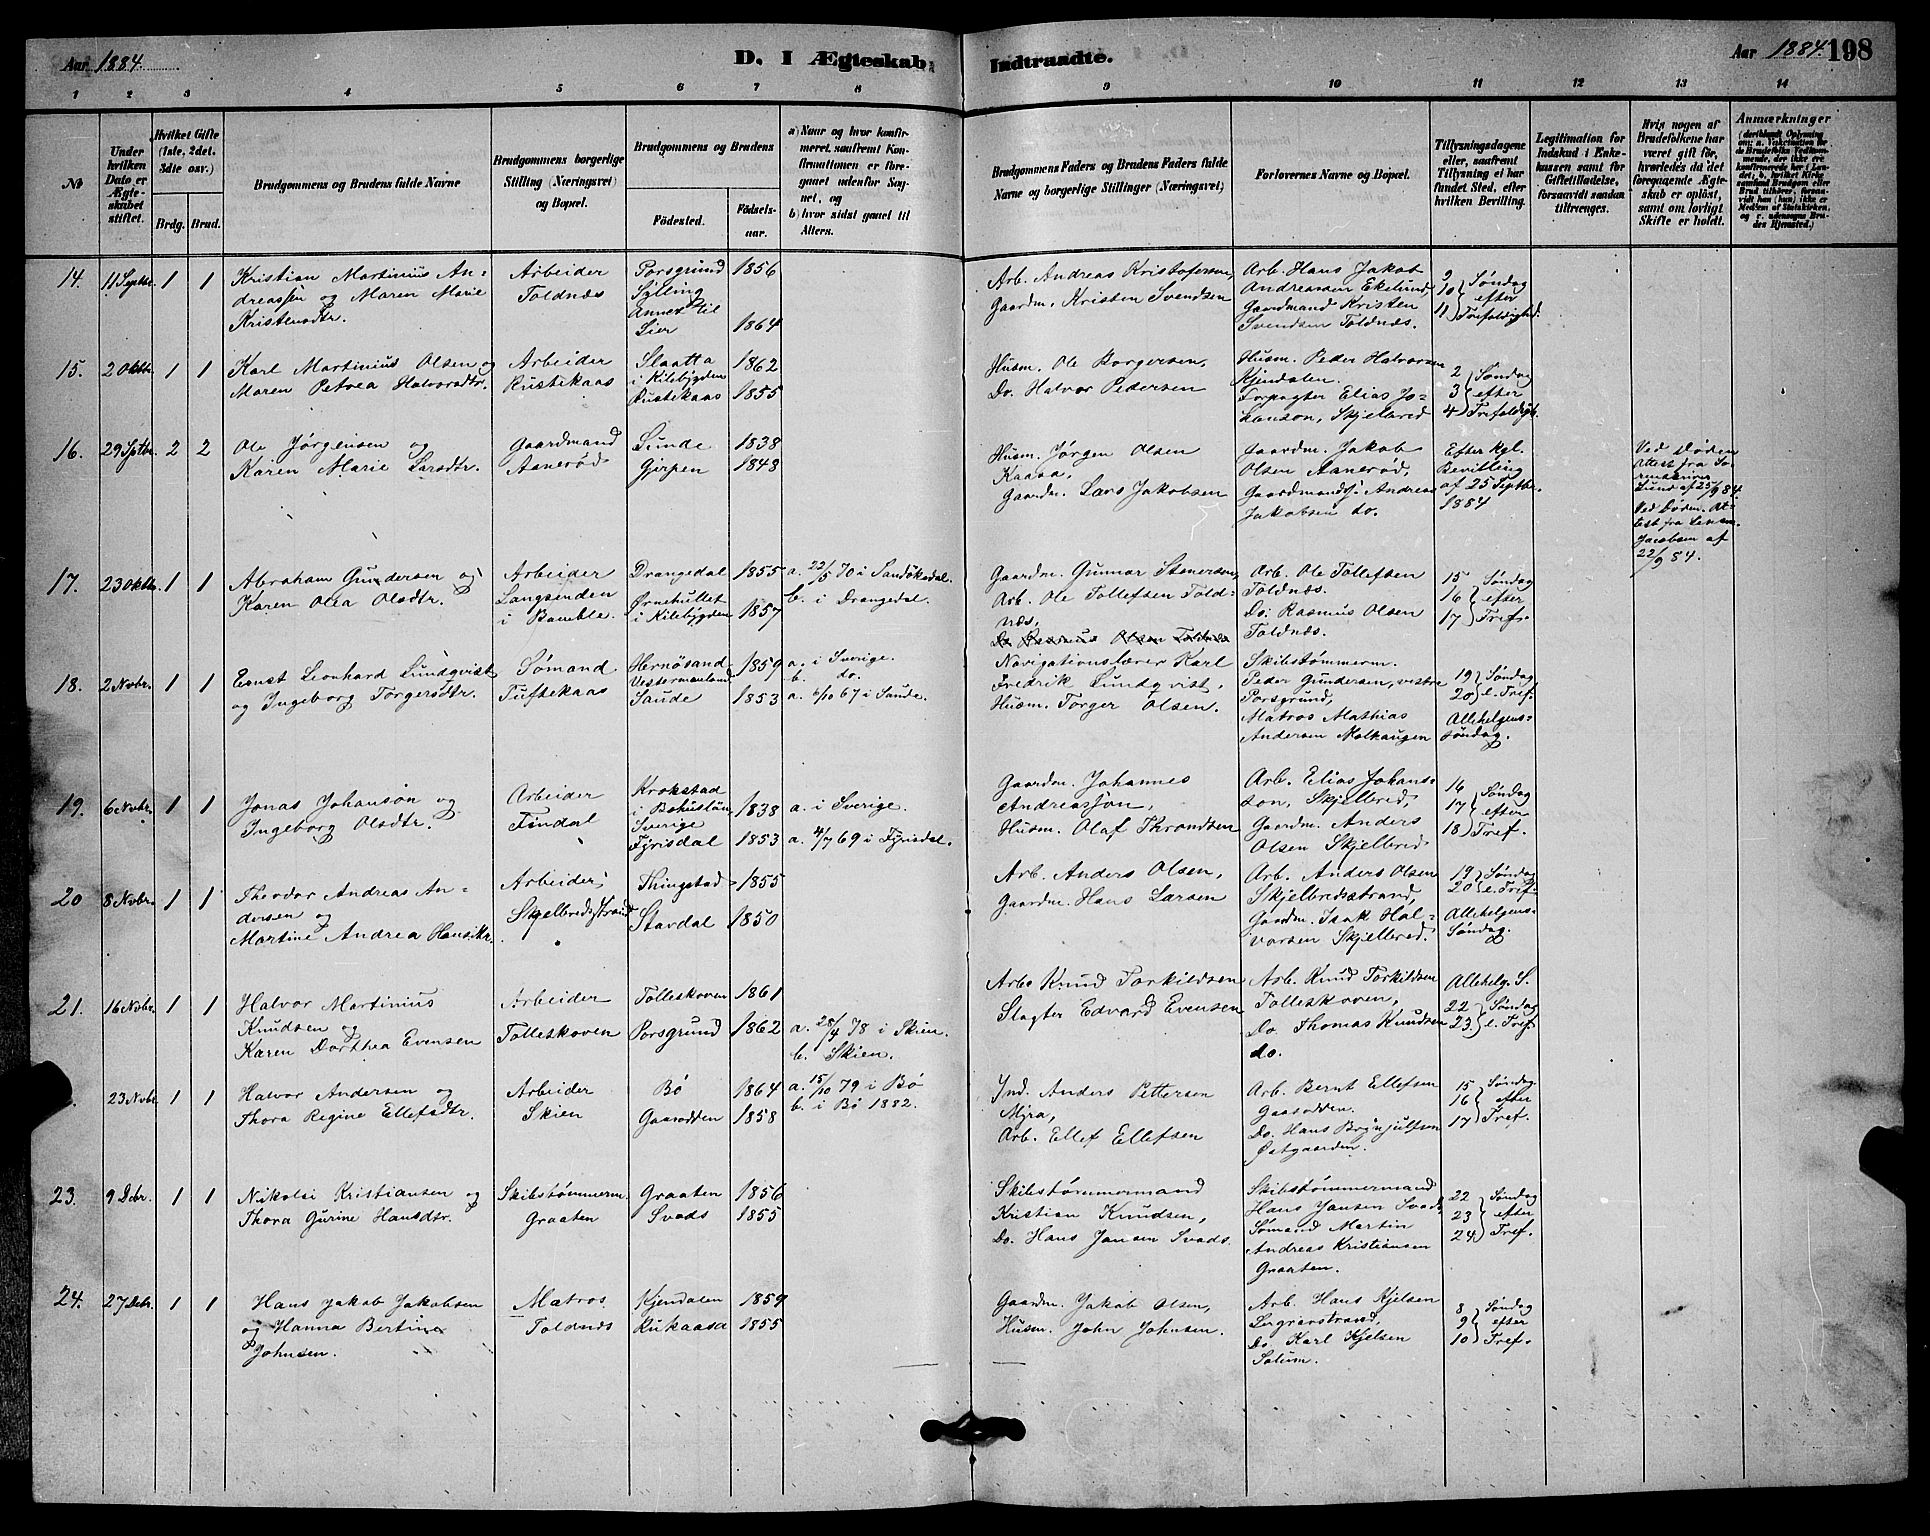 Aar 1884.
D. I Ægteskab
Indtraadte.
Aar 1884. 198
1 2 3 4 5 6 7 8 9 10 11 12 13 14
№
Under hvilken Dato er Ægteskabet stiftet.
Hvilket Gifte (1ste, 2det, 3die osv.)
Brdg. Brud.
Brudgommens og Brudens fulde Navne
Brudgommens borgerlige Stilling (Næringsvei) og Bopæl.
Brudgommens og Brudens
Fødested.
Fødselsaar.
a) Naar og hvor konfirmeret, saafremt Konfirmationen er foregaaet udenfor Sognet, og
b) hvor sidst gaaet til Alters.
Brudgommens Faders og Brudens Faders fulde Navne og borgerlige Stillinger (Næringsvei)
Forlovernes Navne og Bopæl.
Tillysningsdagene eller, saafremt Tillysning ei har fundet Sted, efter hvilken Bevilling.
Legitimation for Indskud i Enkekassen samt for Giftetilladelse, forsaavidt saadan tiltrænges.
Hvis nogen af Brudefolkene har været gift før, hvorledes da det foregaaende Ægteskab er opløst, samt om lovligt Skifte er holdt.
Anmærkninger
14. 11 Septbr. 1 1 Kristian Martinius An-
dreassen og Maren Marie
Kristensdtr.
Arbeider
Toldnæs
Porsgrund 1856
Sylling
Annex til
Lier 1864
Arb. Andreas Kristofersen,
Gaardm. Kristen Svendsen
Arb. Hans Jakob
Andreassen Ekelund,
Gaardmand Kristen
Svendsen Toldnæs.
9
10 Søndag
11 efter
Trefoldighed.
15. 2 Oktbr. 1 1 Karl Martinius Olsen og
Maren Petrea Halvorsdtr.
Arbeider
Rustikaas
Slaatta 1862
i Kilebygden
Rustikaas 1855
Husm. Ole Borgersen,
Do. Halvor Pedersen
Husm. Peder Halvorsen
Kjendalen.
Forpagter Elias Jo-
hanson, Skjelbred
2 Søndag
3 efter
4 Trefoldigh.
16. 29 Septbr. 2 2 Ole Jørgensen og
Karen Marie Larsdtr.
Gaardmand
Aanerød
Sunde 1838
Gjerpen 1848
Husm. Jørgen Olsen
Kaasa,
Gaardm. Lars Jakobsen
Gaardm. Jakob
Olsen Aanerød,
Gaardmands. Andreas
Jakobsen do.
Efter kgl.
Bevilling
af 25 Septbr.
1884
Ved Døden
Attest fra So-
renskriver
Lund af 25/9 84.
Ved Døden. At-
test fra Lensm.
Jacobsen af
22/9 84.
17. 23 Oktbr. 1 1 Abraham Gundersen og
Karen Olea Olsdtr.
Arbeider
Langsenden
i Bamble.
Drangedal 1855
Ørnehullet
i Kilebygden 1857
a. 22/5 70 i Sandøkedal.
b. i Drangedal.
Gaardm. Gunnar Stenersen,
Arb. Ole Tollefsen Told-
næs,
Do Rasmus Olsen Toldnæs
Arb. Ole Tollefsen
Toldnæs.
Do. Rasmus Olsen
Toldnæs.
15 Søndag
16 efter
17 Tref.
18. 2 Novbr. 1 1 Ernst Leonhard Lundqvist
og Ingeborg Torgersdtr.
Sømand
Tuftekaas
Hernösand 1859
Vestermanland
Saude 1853
a. i Sverige.
b. do.
a. 6/10 67 i Saude.
Navigationslærer Karl
Fredrik Lundqvist,
Husm. Torger Olsen.
Skibstømmerm.
Peder Gundersen, vestre
Porsgrund,
Matros Mathias
Andersen Molhaugen
19 Søndag
20 e. Tref.
Allehelgens-
søndag.
19. 6 Novbr. 1 1 Jonas Johanson og
Ingeborg Olsdtr.
Arbeider
Findal
Krokstad
i Bohuslän 1838
Sverige
Fyrisdal 1853
a. i Sverige.
a. 4/7 69 i Fyrisdal.
Gaardm. Johannes
Andreasson,
Husm. Olaf Throndsen
Arb. Elias Johans-
son, Skjelbred,
Gaardm. Anders
Olsen Skjelbred
16 Søndag
17 efter
18 Tref.
20 8 Novbr. 1 1 Theodor Andreas An-
dersen og
Martine Andrea Hansdtr.
Arbeider,
Skjelbredsstrand
Thingstad 1855
Stavdal 1850
Arb. Anders Olsen,
Gaardm. Hans Larsen
Arb. Anders Olsen
Skjelbredsstrand,
Gaardm. Isak Hal-
vorsen Skjelbred.
19 Søndag
20 e. Tref.
Allehelgens-
Søndag.
21. 16 Novbr. 1 1 Halvor Martinius
Knudsen og
Karen Dorthea Evensen
Arbeider
Tolleskoven
Tolleskoven 1861
Porsgrund 1862
a. 28/4 78 i Skien.
b. Skien.
Arb. Knud Torkildsen
Slagter Edvard Evensen
Arb. Knud Torkildsen
Tolleskoven,
Do. Thomas Knudsen
do.
Allehelg. S.
22 Søndag
23 e. Tref.
23 Novbr. 1 1 Halvor Andersen og
Thora Regine Ellefsdtr.
Arbeider
Skien
Bø 1864
Gaasodden 1858
a. 15/10 79 i Bø
b. i Bø 1882.
Ind. Anders Pettersen
Myra,
Arb. Ellef Ellefsen
Arb. Bernt Ellefsen
Gaasodden.
Do. Hans Brynjulfsen
Østgaarden.
15 Søndag
16 efter
17 Tref.
23. 9 Debr. 1 1 Nikolai Kristiansen og
Thora Gurine Hansdtr.
Skibstømmerm.
Graaten
Graaten 1856
Svads 1855
Skibstømmermand
Kristian Knudsen,
Do. Hans Jansen Svads.
Skibstømmermand
Hans Jansen Svads
Sømand Martin
Andreas Kristiansen
Graaten.
22 Søndag
23 efter
24 Tref.
24. 27 Debr. 1 1 Hans Jakob Jakobsen
og Hanna Bertine
Johnsen.
Matros
Toldnæs
Kjendalen 1859
Rukaasa 1855
Gaardm. Jakob Olsen,
Husm. John Johnsen.
Arb. Hans Kjelsen
Do. Karl Kjelsen
Solum.
8 Søndag
9 efter
10 Tref.